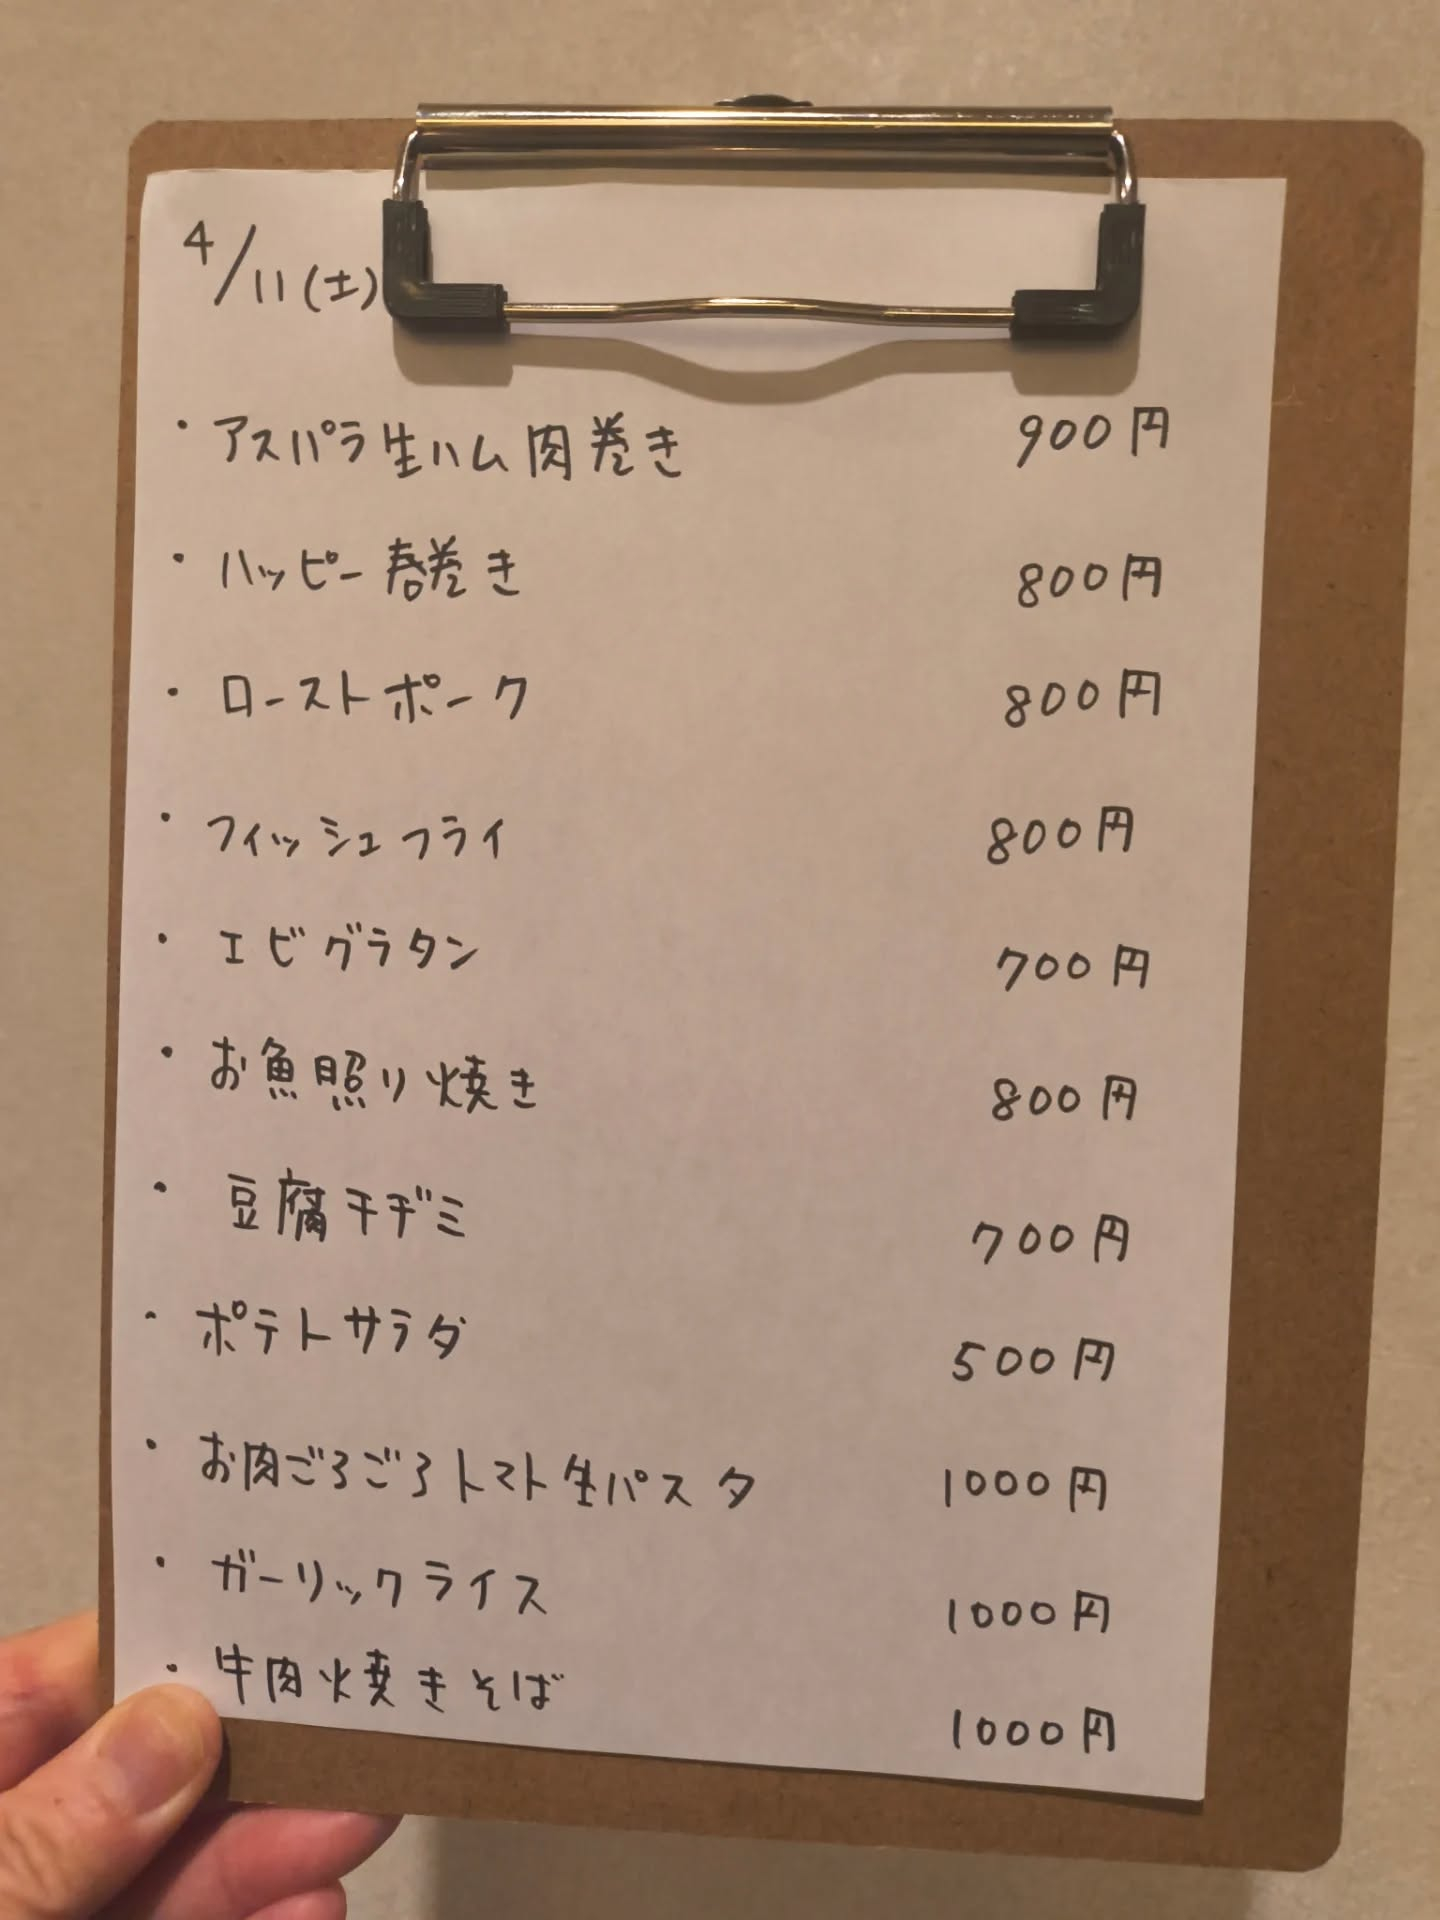 4/11(土)
・アスパラ生ハム肉巻き 900円
・ハッピー春巻き 800円
・ローストポーク 800円
・フィッシュフライ 800円
・エビグラタン 700円
・お魚照り焼き 800円
・豆腐チヂミ 700円
・ポテトサラダ 500円
・お肉ごろごろトマト生パスタ 1000円
・ガーリックライス 1000円
・牛肉焼きそば 1000円